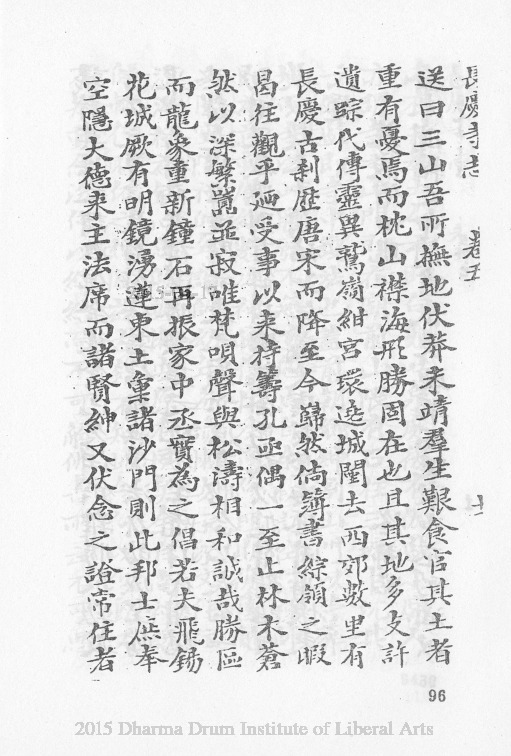 長慶寺志 卷五 十
送曰三山吾所撫地伏莽未靖羣生艱食官其土者
重有憂焉而枕山襟海形勝固在也且其地多支許
遺踪代傳靈異鷲嶺紺宮環遶城闉去西郊數里有
長慶古刹歷唐宋而降至今巋然倘簿書綜領之暇
曷往觀乎廼受事以來持籌孔亟偶一至止林木蒼
然以深繁囂並寂唯梵唄聲與松濤相和誠哉勝區
而龍象重新鐘石再振家中丞實為之倡若夫飛錫
花城厥有明鏡湧蓮東土彙諸沙門則此邦士庶奉
空隱大德來主法席而諸賢紳又伏念之證常住者
96
2015 Dharma Drum Institute of Liberal Arts